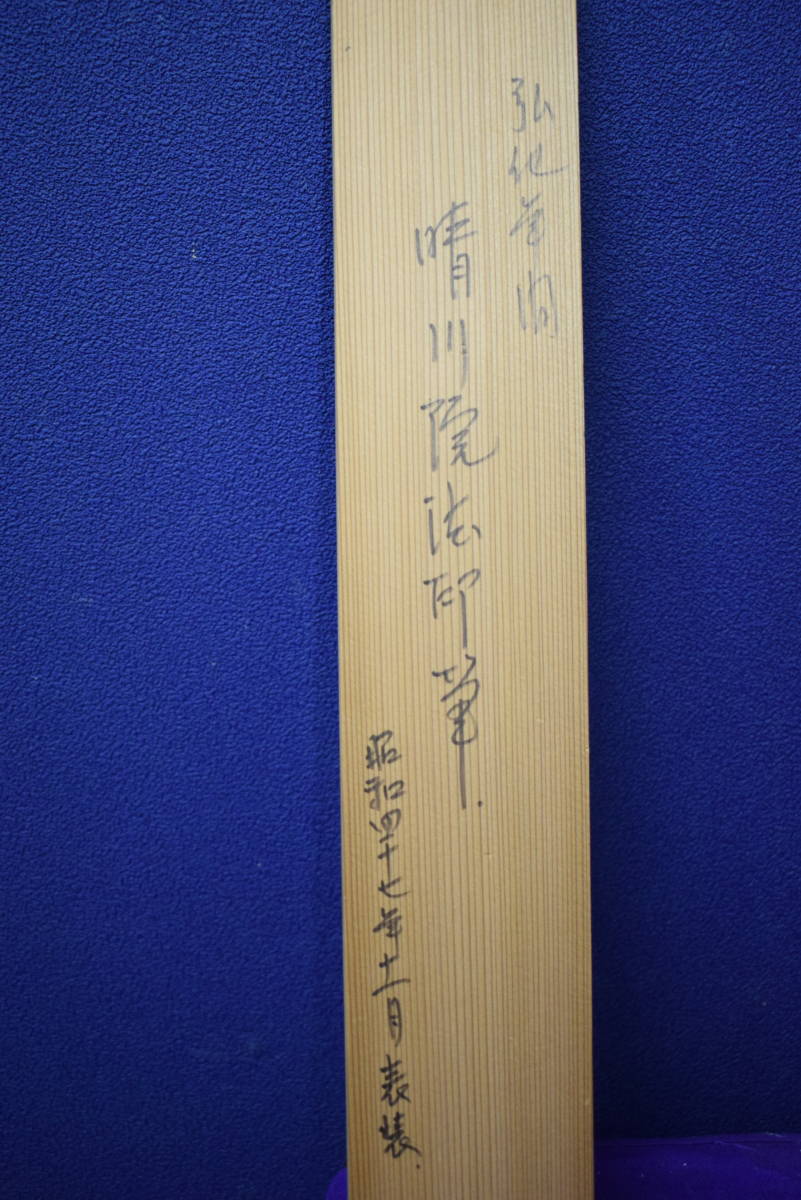 弘化年間
晴川院法印筆.
昭和四十七年十一月表装.